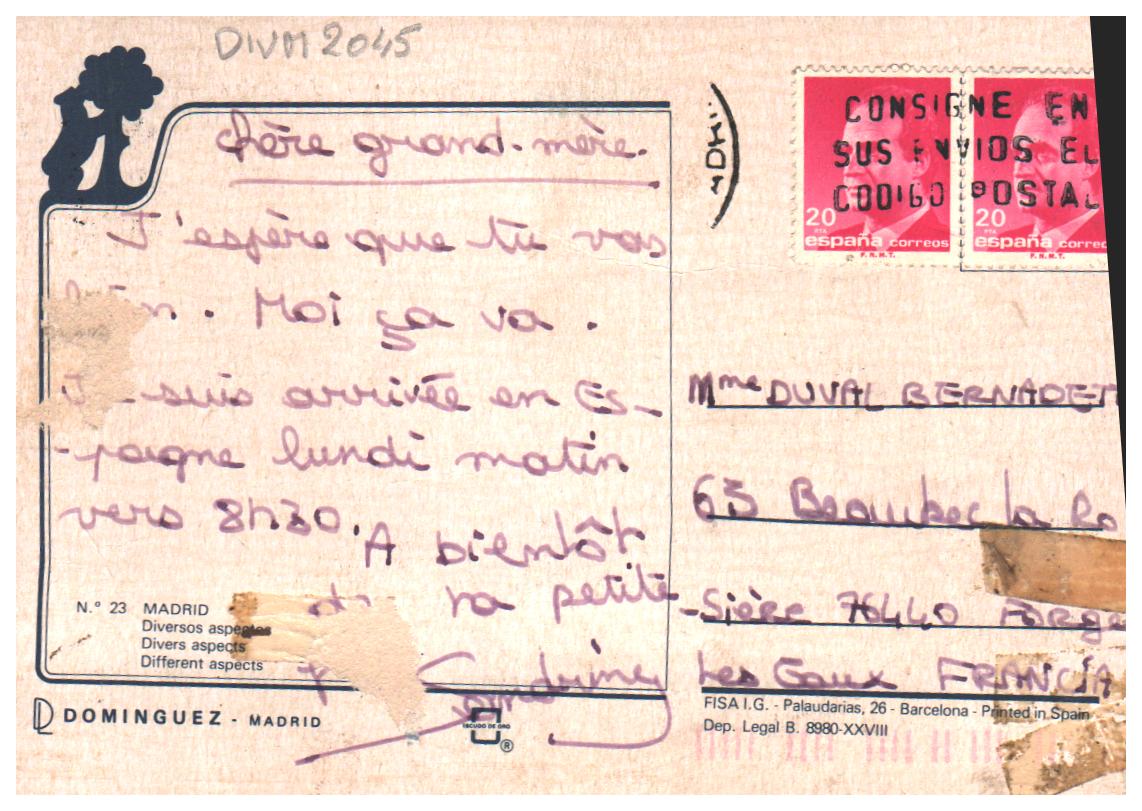 DIVM 2045
chère grand-mère.
J'espère que tu vas
bien. Moi ça va.
Je suis arrivée en Es-
-pagne lundi matin
vers 8h30.
A bientôt
ta petite
Sandrine
N.° 23 MADRID
Diversos aspectos
Divers aspects
Different aspects
DOMINGUEZ - MADRID
ESCUDO DE ORO
®
CONSIGNE EN
SUS ENVIOS EL
CODIGO POSTAL
20 PTA
españa correos
F.N.M.T.
20 PTA
españa correo
F.N.M.T.
Mme DUVAL BERNADET
63 Beaubec la Ro
-sière 76440 Forge
Les Eaux FRANCIA
FISA I.G. - Palaudarias, 26 - Barcelona - Printed in Spain
Dep. Legal B. 8980-XXVIII